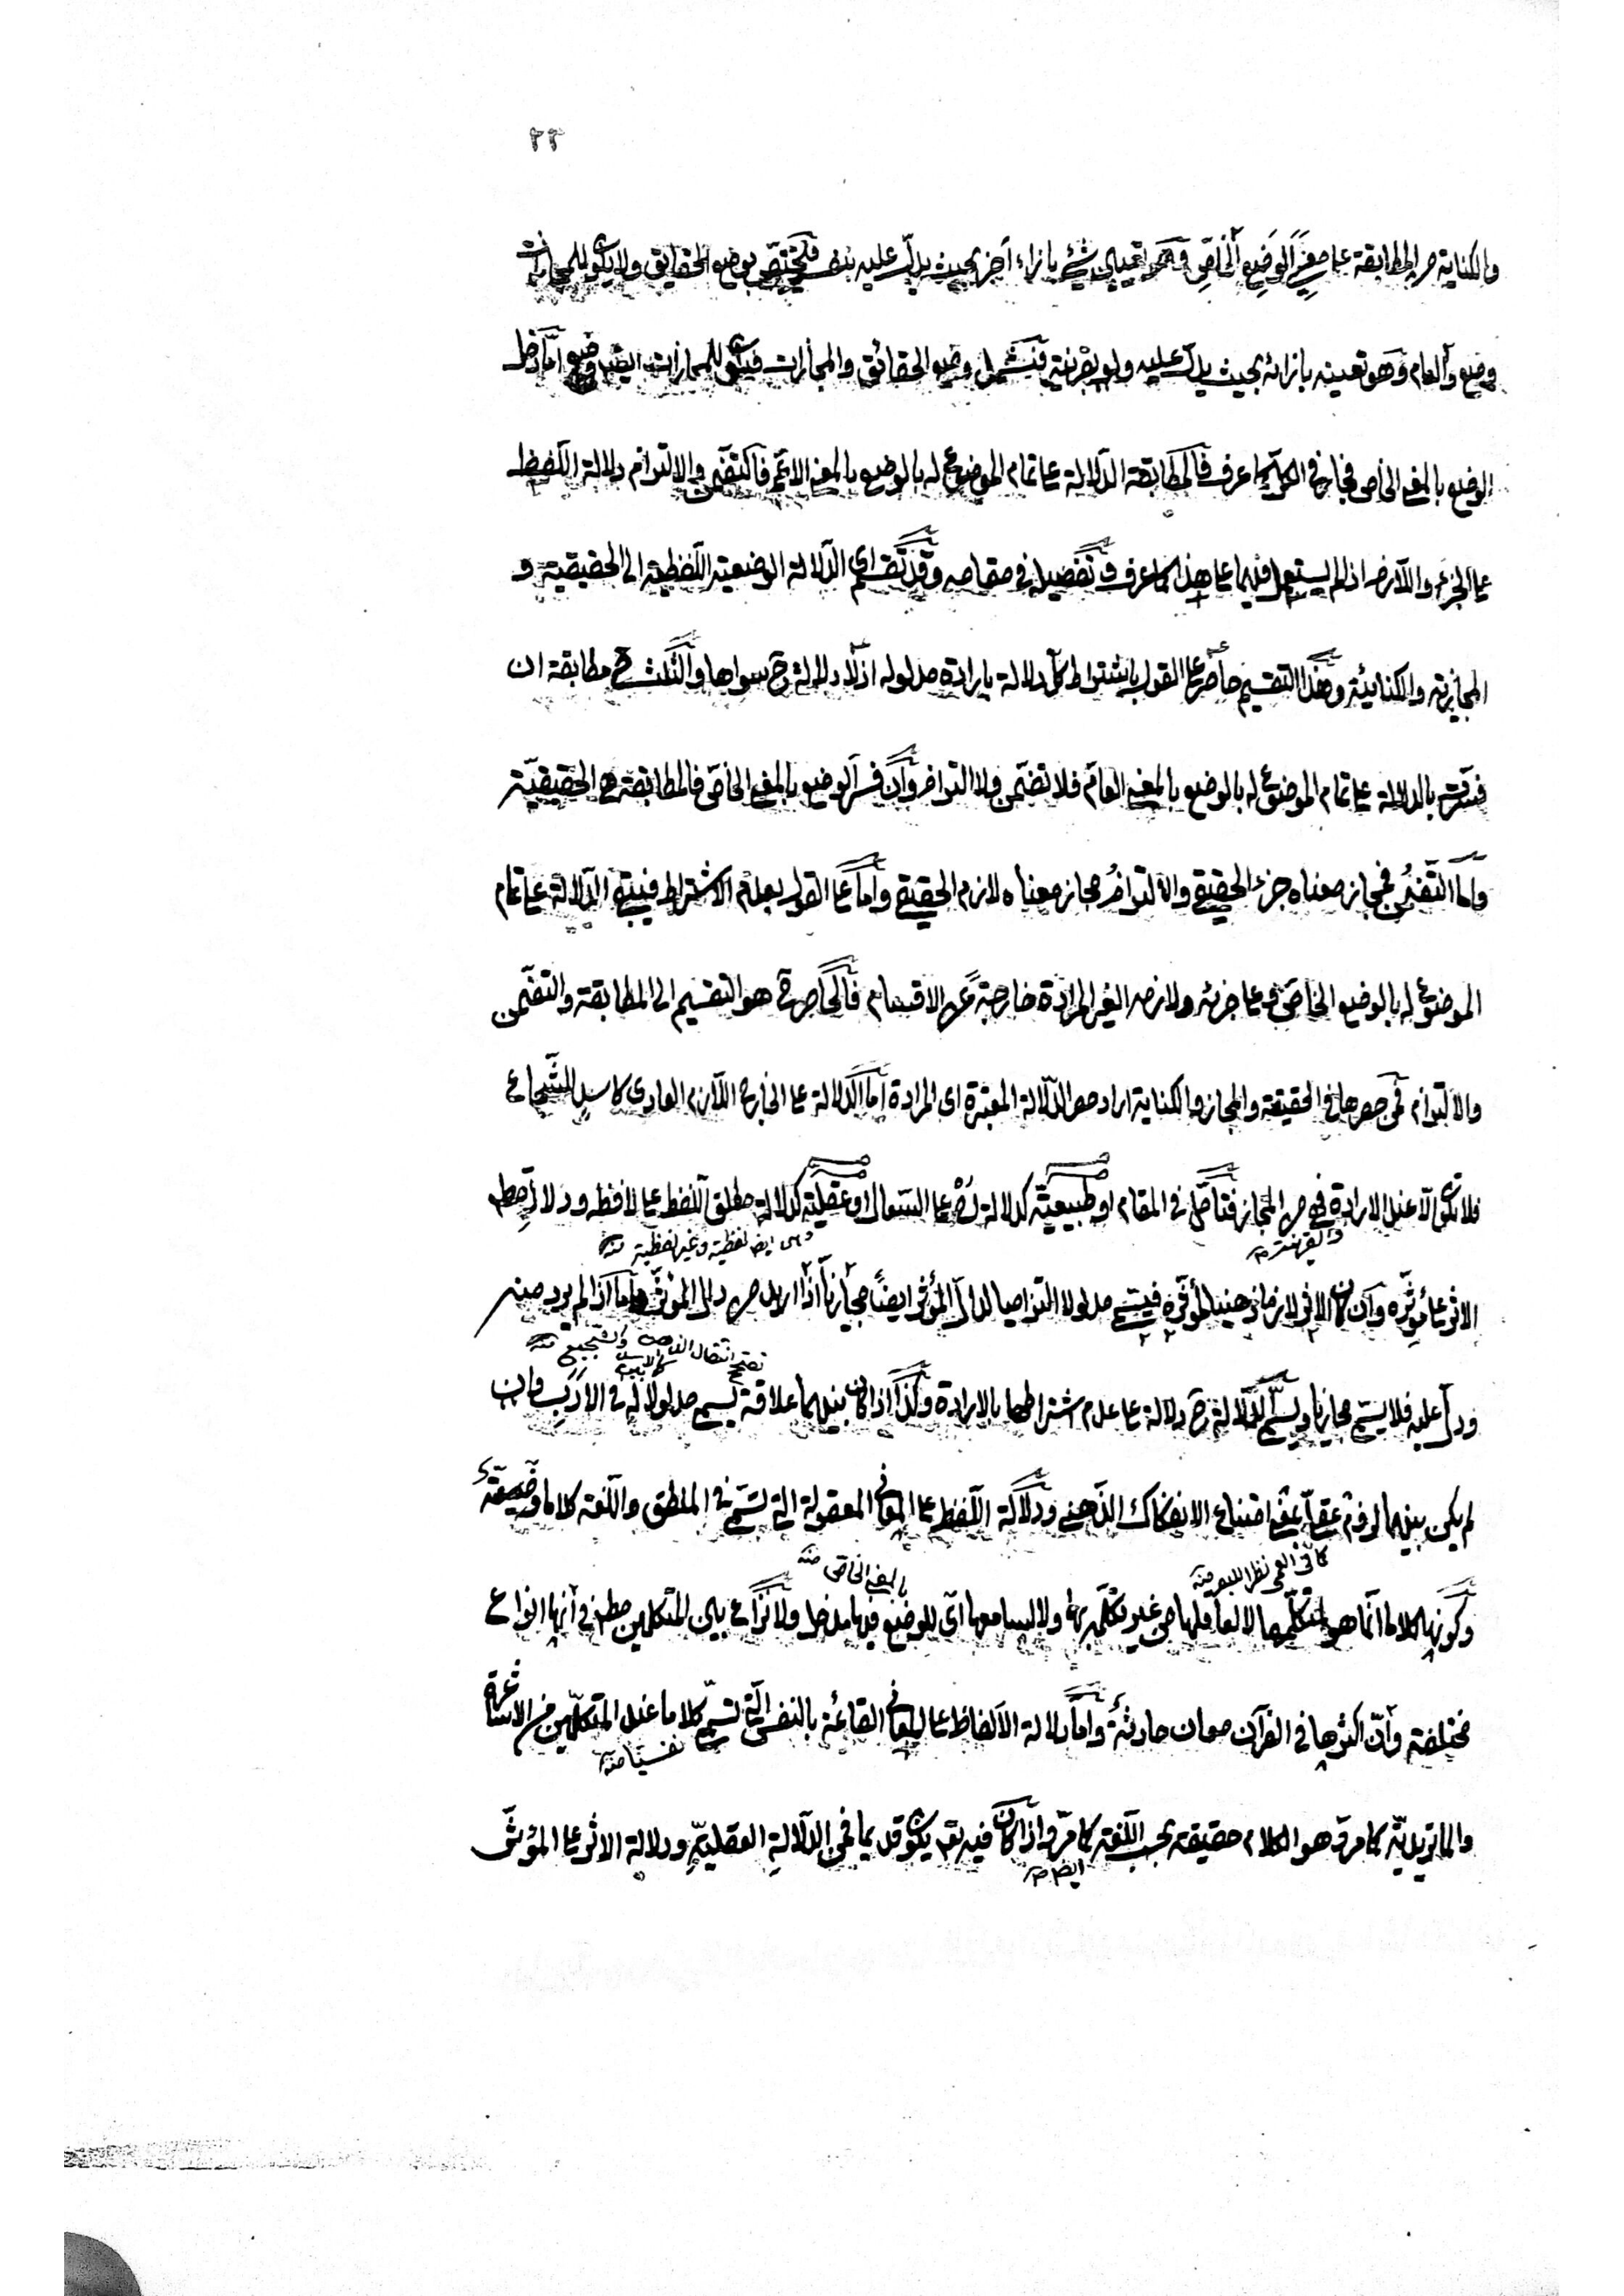 ٢٣
والكناية من المطابقة على معنى الوضع الخاص وهو تعيين شئ بازاء آخر بحيث يدل عليه بنفسه فيختص بوضع الحقايق ولا يكون للمجازات
وضع والعام وهو تعيينه بازائه بحيث يدل عليه ولو بقرينة فيشمل وضع الحقائق والمجازات فيكون للمجازات ايضا وضع اما دخل
الوضع بالمعنى الخاص فمجاز في الكل كما عرف فالمطابقة الدلالة على تمام الموضوع له بالوضع بالمعنى الاعم فالتضمن والالتزام دلالة اللفظ
على الجزء واللازم اذا لم يستعمل فيهما على هذا كما عرف تفصيله في مقامه وقد تقسم اى الدلالة الوضعية اللفظية الى الحقيقية و
المجازية والكنائية وهذا التقسيم حاصر على القول باشتراط كل دلالة بارادة مدلوله اذ لا دلالة ح سواها والثلث ح مطابقة ان
فسرت بالدلالة على تمام الموضوع له بالوضع بالمعنى العام فلا تضمن ولا التزام وان فسر الوضع بالمعنى الخاص فالمطابقة هى الحقيقية
واما التضمن فمجاز معناه جزء الحقيقى والالتزام مجاز معناه لازم الحقيقى واما على القول بعدم الاشتراط فيبقى الدلالة على تمام
الموضوع له بالوضع الخاص وعلى جزئه ولازمه الغير المرادة خارجة عن الاقسام فالحاصر ح هو التقسيم الى المطابقة والتضمن
والالتزام فمن حصرها في الحقيقة والمجاز والكناية اراد حصر الدلالة المعتبرة اى المرادة اما الدلالة على الخارج اللازم العادى كالاسد للشجاع
فلا تكون الا عند الارادة فهى من المجاز فتأمل في المقام او طبيعية كدلالة اح على السعال او عقلية كدلالة مطلق اللفظ على لافظه ودلالة
والقرينة منه
وهى ايضا لفظية وغير لفظية منه
الاثر على مؤثره وان كان الاثر لازما ذهنيا لمؤثره فيسمى مدلولا التزاميا لدال المؤثر ايضا مجازيا اذا اريد من دال المؤثر واما اذا لم يرد منه
تصحح انتقال الذهن
ودل عليه فلا يسمى مجازيا ويسمى الدلالة ح دلالة على عدم اشتراطها بالارادة وكذا اذا كان بينهما علاقة يسمى مدلولا له في الادب وان
لم يكن بينهما لزوم عقلا بمعنى امتناع الانفكاك الذهنى ودلالة اللفظ على المعانى المعقولة التى تسمى في المنطق واللغة كلاما وضعية
بالمعنى الخاص منه
وكونها كلاما انما هو لمتكلمها لا لعاقلها من غير تكلم بها ولا لسامعها اى للوضع فيها مدخل ولا نزاع بين المتكلمين مطلقا في انها انواع
مختلفة وان اكثرها في القرآن معان حادثة واما دلالة الالفاظ على المعانى القائمة بالنفس التى تسمى كلاما عند المتكلمين من الاشاعرة
نفسيا منه
والماتريدية كما مر وهو الكلام حقيقة بحسب اللغة كما مر واذا كان فيه يكون قديما فمن الدلالة العقلية ودلالة الاثر على المؤثر
ايضا منه